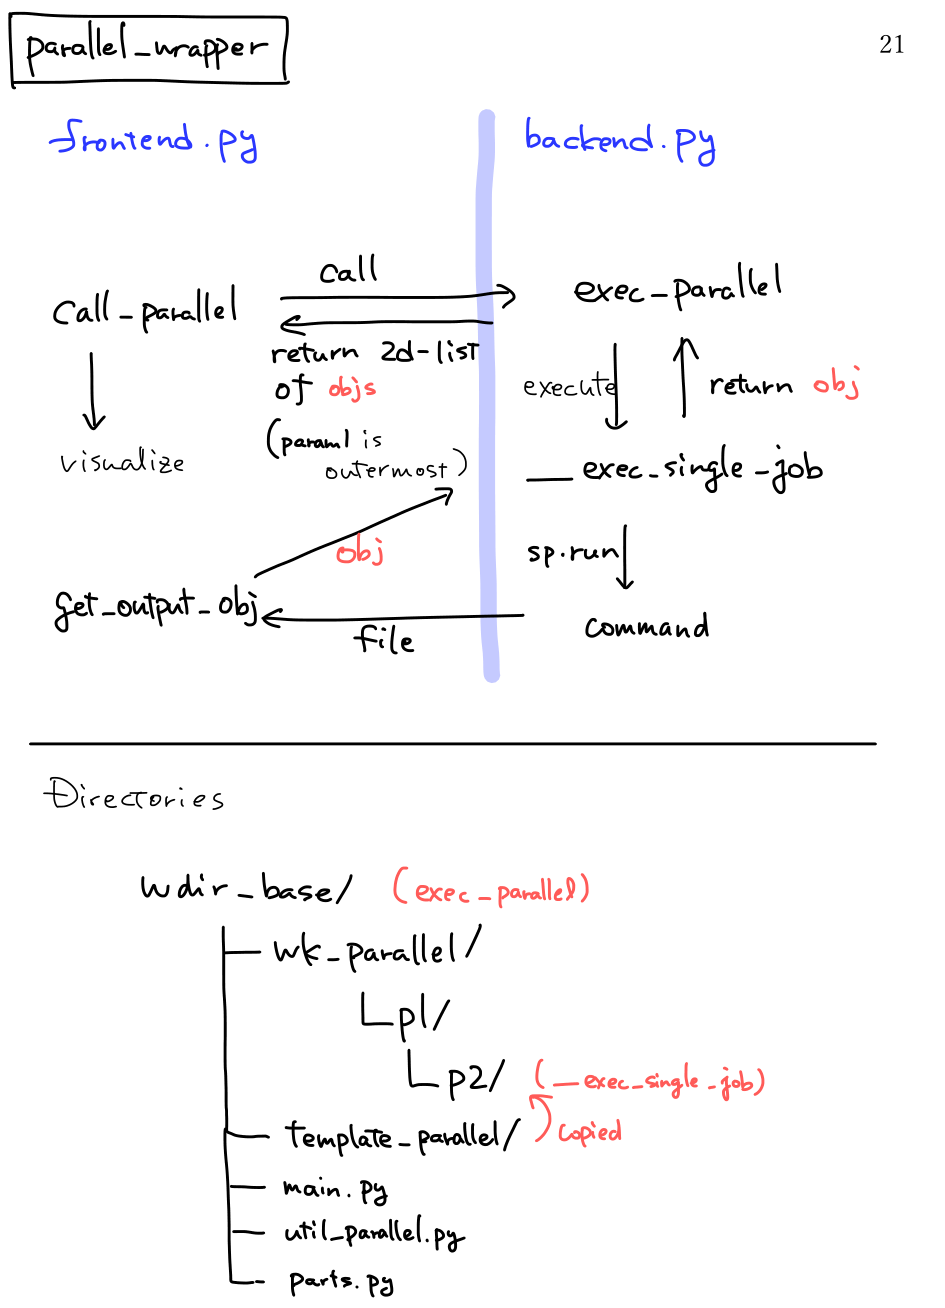 parallel_wrapper
21
frontend.py
backend.py
call
call_parallel
exec_parallel
return 2d-list
of objs
execute
return obj
(param1 is
outermost)
visualize
__exec_single_job
obj
sp.run
get_output_obj
file
command
Directories
wdir_base/ (exec_parallel)
wk_parallel/
p1/
p2/ (__exec_single_job)
template_parallel/ copied
main.py
util_parallel.py
parts.py